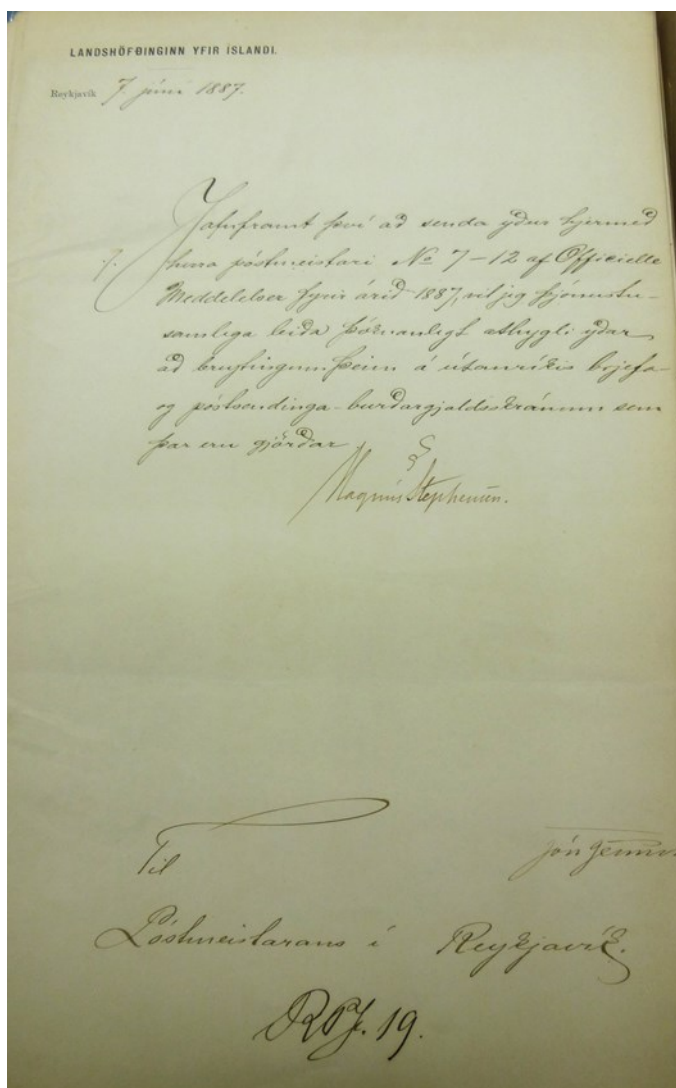 LANDSHÖFÐINGINN YFIR ÍSLANDI.
Reykjavík 7. júní 1887.
Jafnframt því að senda yður hjermeð
herra póstmeistari № 7–12 af Officielle
Meddelelser fyrir árið 1887, vil jeg þjónustu-
samlega leiða þóknanlegt athygli yðar
að breytingum þeim á útanríkis brjefa-
og póstsendinga-burðargjaldsskránum sem
þar eru gjörðar.
Magnús Stephensen.
Jón Jenss
Til
Póstmeistarans í Reykjavík.
19.